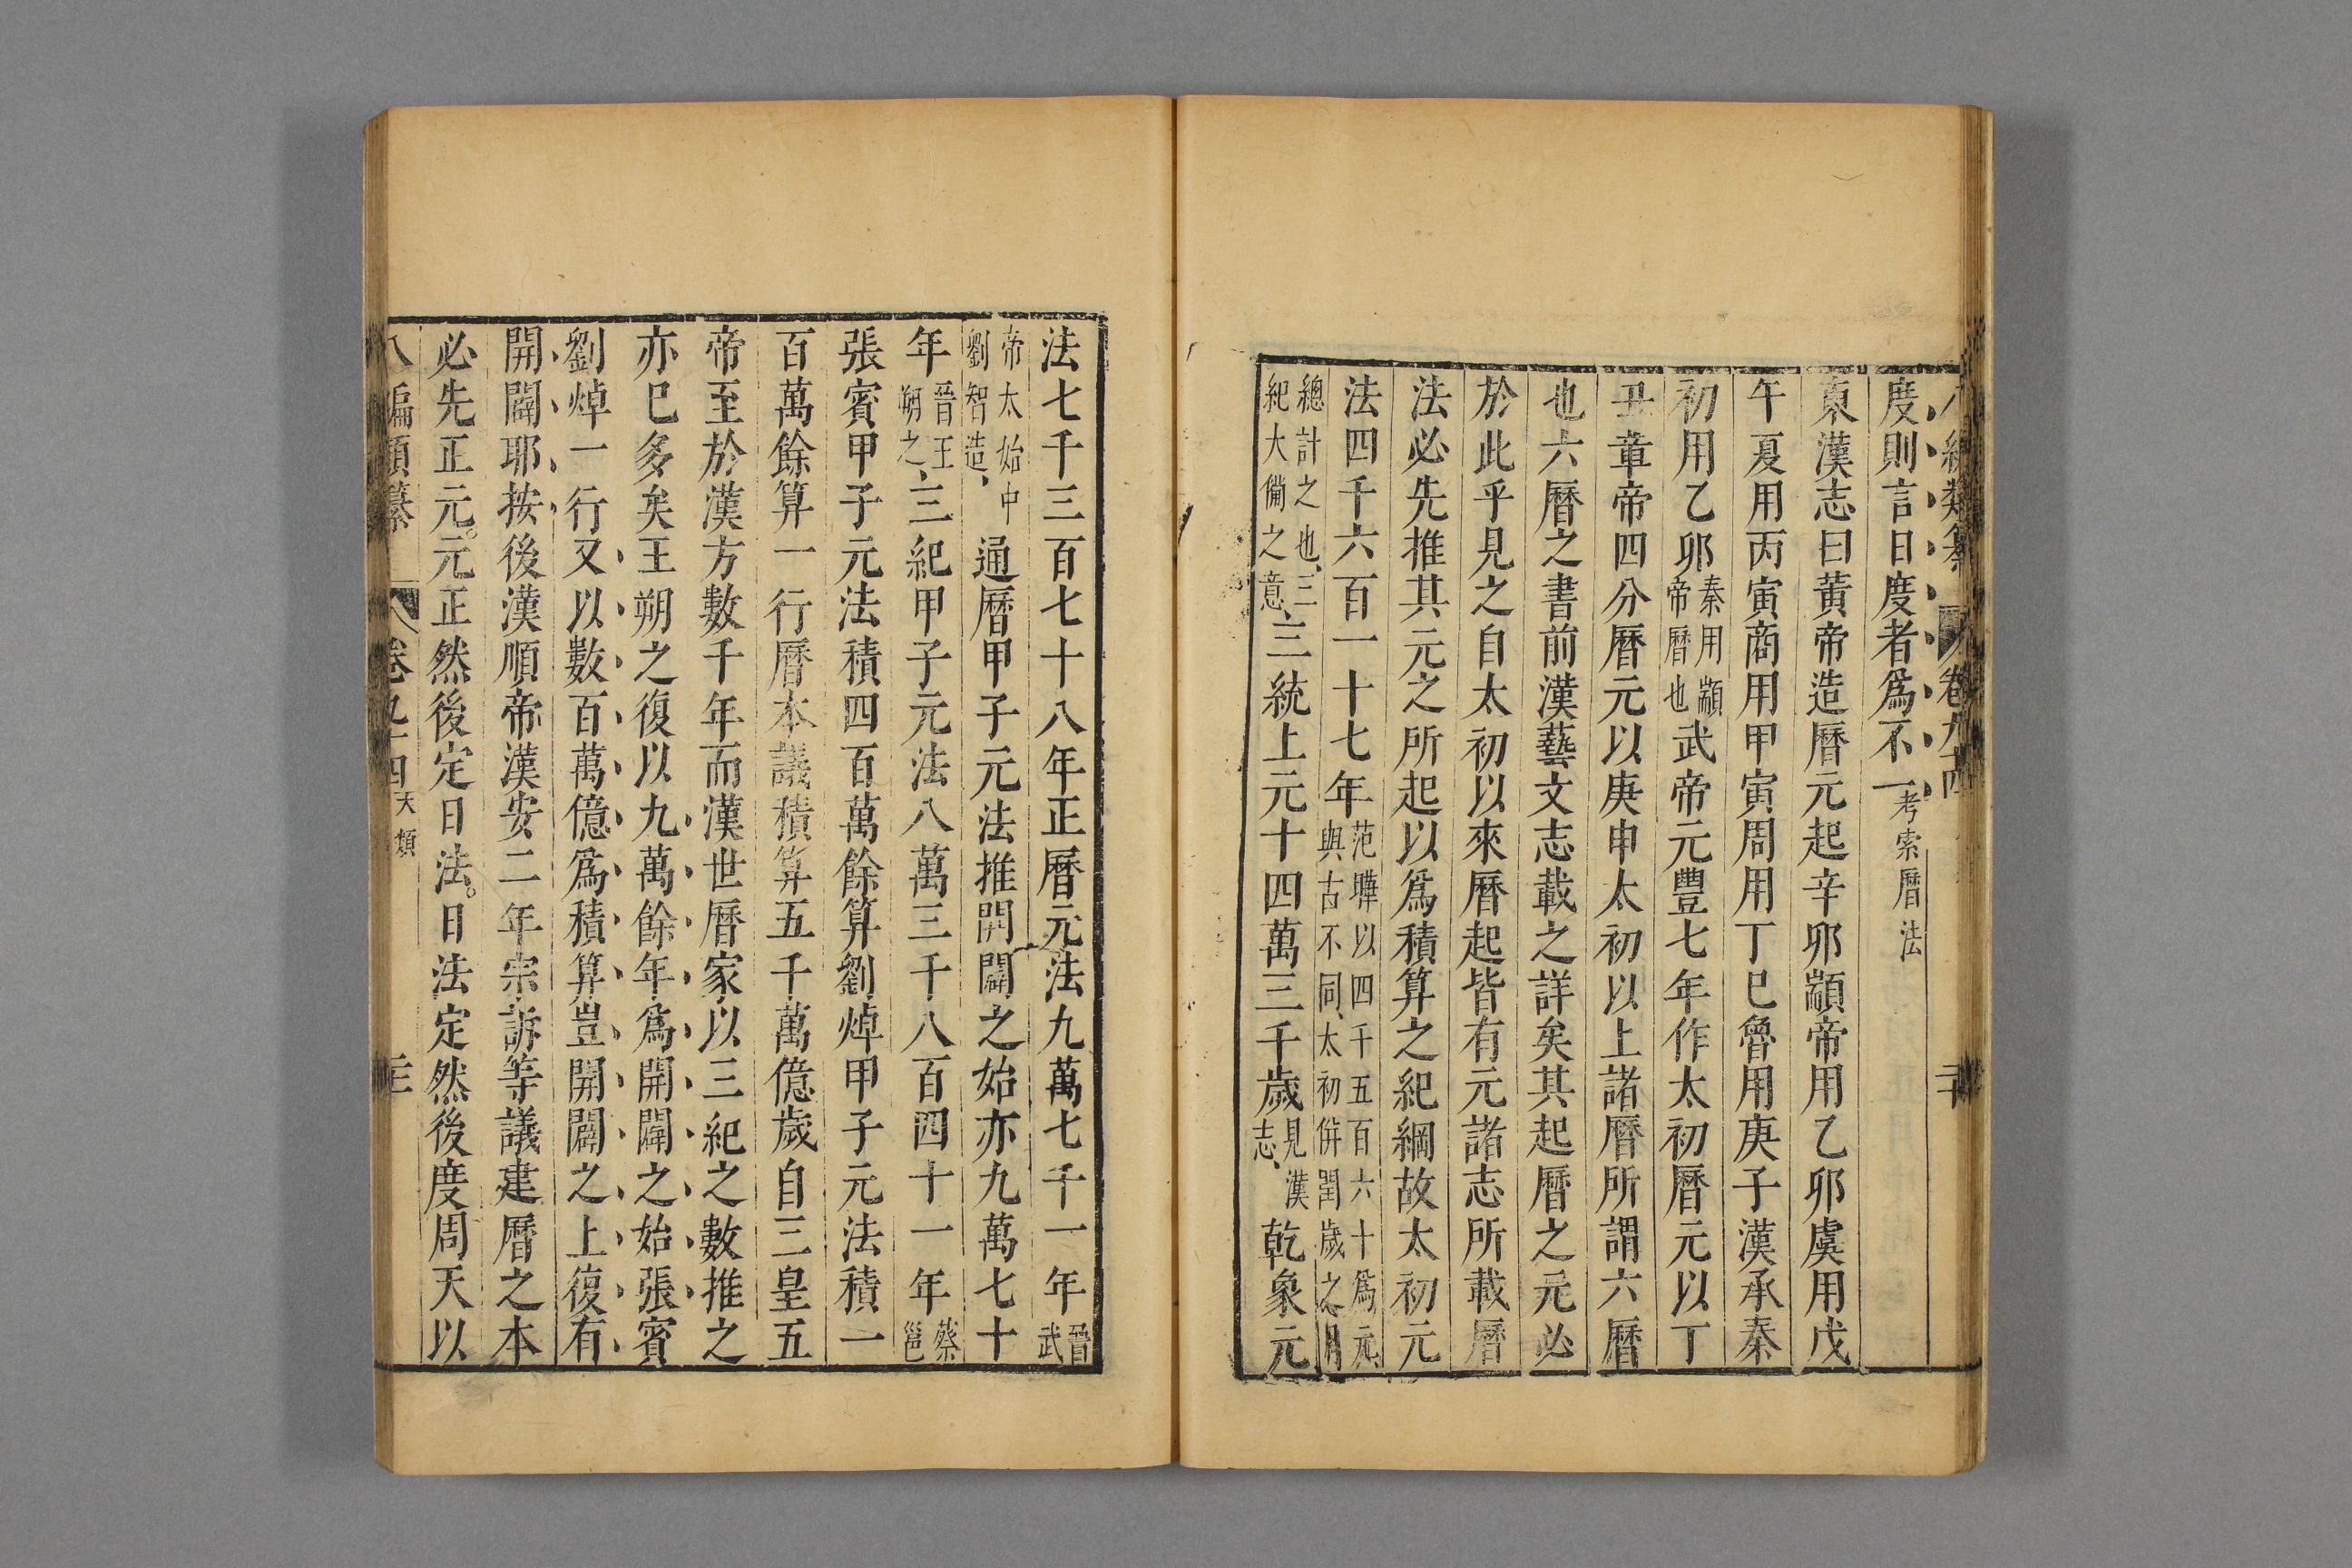 八編類纂 卷九十四 二十
度則言日度者爲不一考索曆法
東漢志曰黃帝造曆元起辛卯顓帝用乙卯虞用戊
午夏用丙寅商用甲寅周用丁巳魯用庚子漢承秦
初用乙卯秦用顓帝曆也武帝元豐七年作太初曆元以丁
丑章帝四分曆元以庚申太初以上諸曆所謂六曆
也六曆之書前漢藝文志載之詳矣其起曆之元必
於此乎見之自太初以來曆起皆有元諸志所載曆
法必先推其元之所起以爲積算之紀綱故太初元
法四千六百一十七年范曄以四千五百六十爲元、與古不同、太初倂閏歲之
總計之也、三紀大僃之意、三統上元十四萬三千歲見漢志、乾象元
法七千三百七十八年正曆元法九萬七千一年晉武
帝太始中劉智造、通曆甲子元法推開闢之始亦九萬七十
年晉王朔之、三紀甲子元法八萬三千八百四十一年蔡邕
張賓甲子元法積四百萬餘算劉焯甲子元法積一
百萬餘算一行曆本議積算五千萬億歲自三皇五
帝至於漢方數千年而漢世曆家以三紀之數推之
亦巳多矣王朔之復以九萬餘年爲開闢之始張賓
劉焯一行又以數百萬億爲積算豈開闢之上復有
開闢耶按後漢順帝漢安二年宗訴等議建曆之本
必先正元。元正然後定日法。日法定然後度周天以
八編類纂 卷九十四 天類